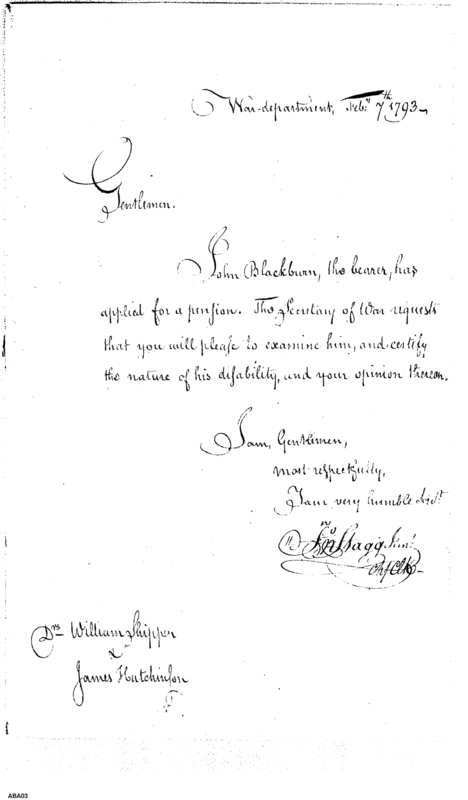 War-department, Feby 7th 1793
Gentlemen.
John Blackburn, the bearer, has
applied for a pension. The Secretary of War requests
that you will please to examine him, and certify
the nature of his disability, and your opinion thereon.
I am, Gentlemen,
most respectfully,
I am very humble Servt
Jno Stagg Junr
Chf Clk
Drs William Shipper
&
James Hutchinson
ABA03